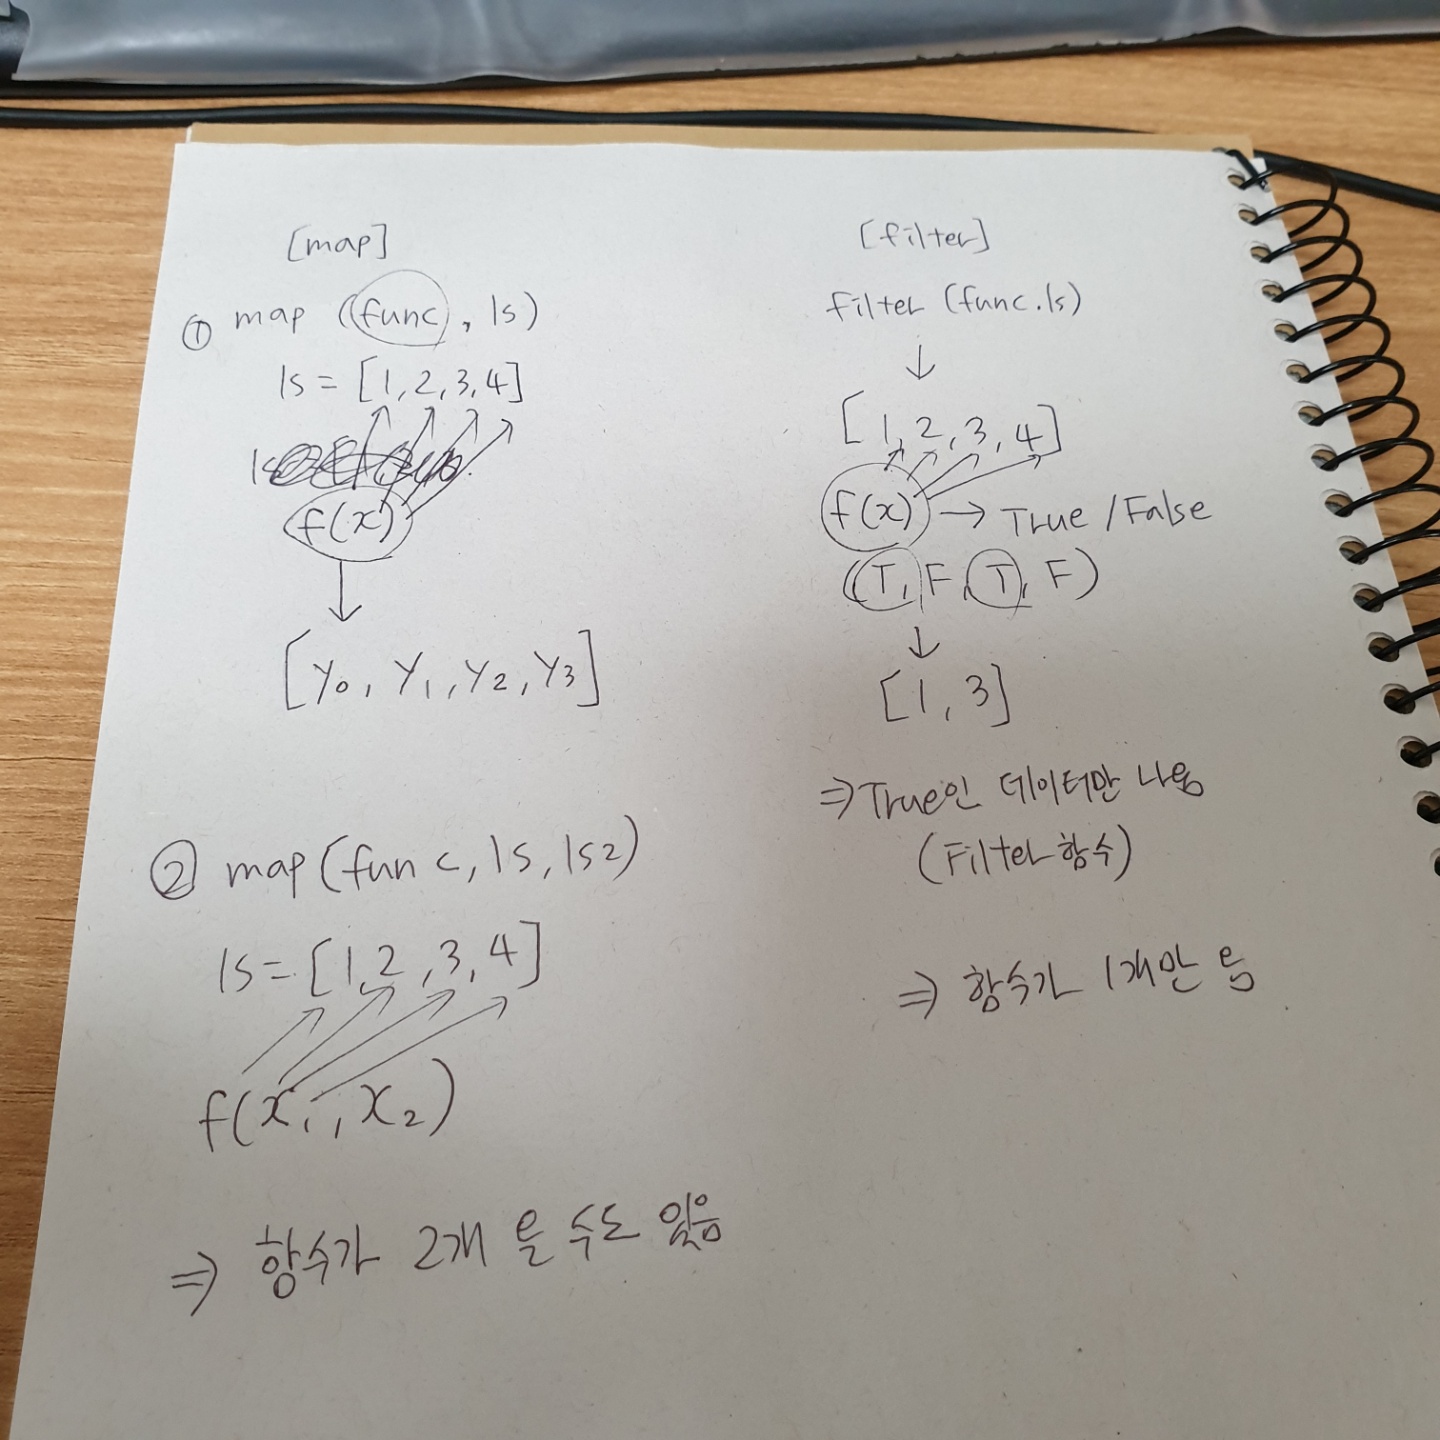 [map]
① map (func, ls)
ls = [1, 2, 3, 4]
f(x)
[y₀, y₁, y₂, y₃]
② map (func, ls, ls2)
ls = [1, 2, 3, 4]
f(x₁, x₂)
⇒ 함수가 2개 올 수도 있음
[filter]
filter (func.ls)
[1, 2, 3, 4]
f(x) → True / False
(T, F, T, F)
[1, 3]
⇒ True인 데이터만 나옴
(Filter 함수)
⇒ 함수가 1개만 옴